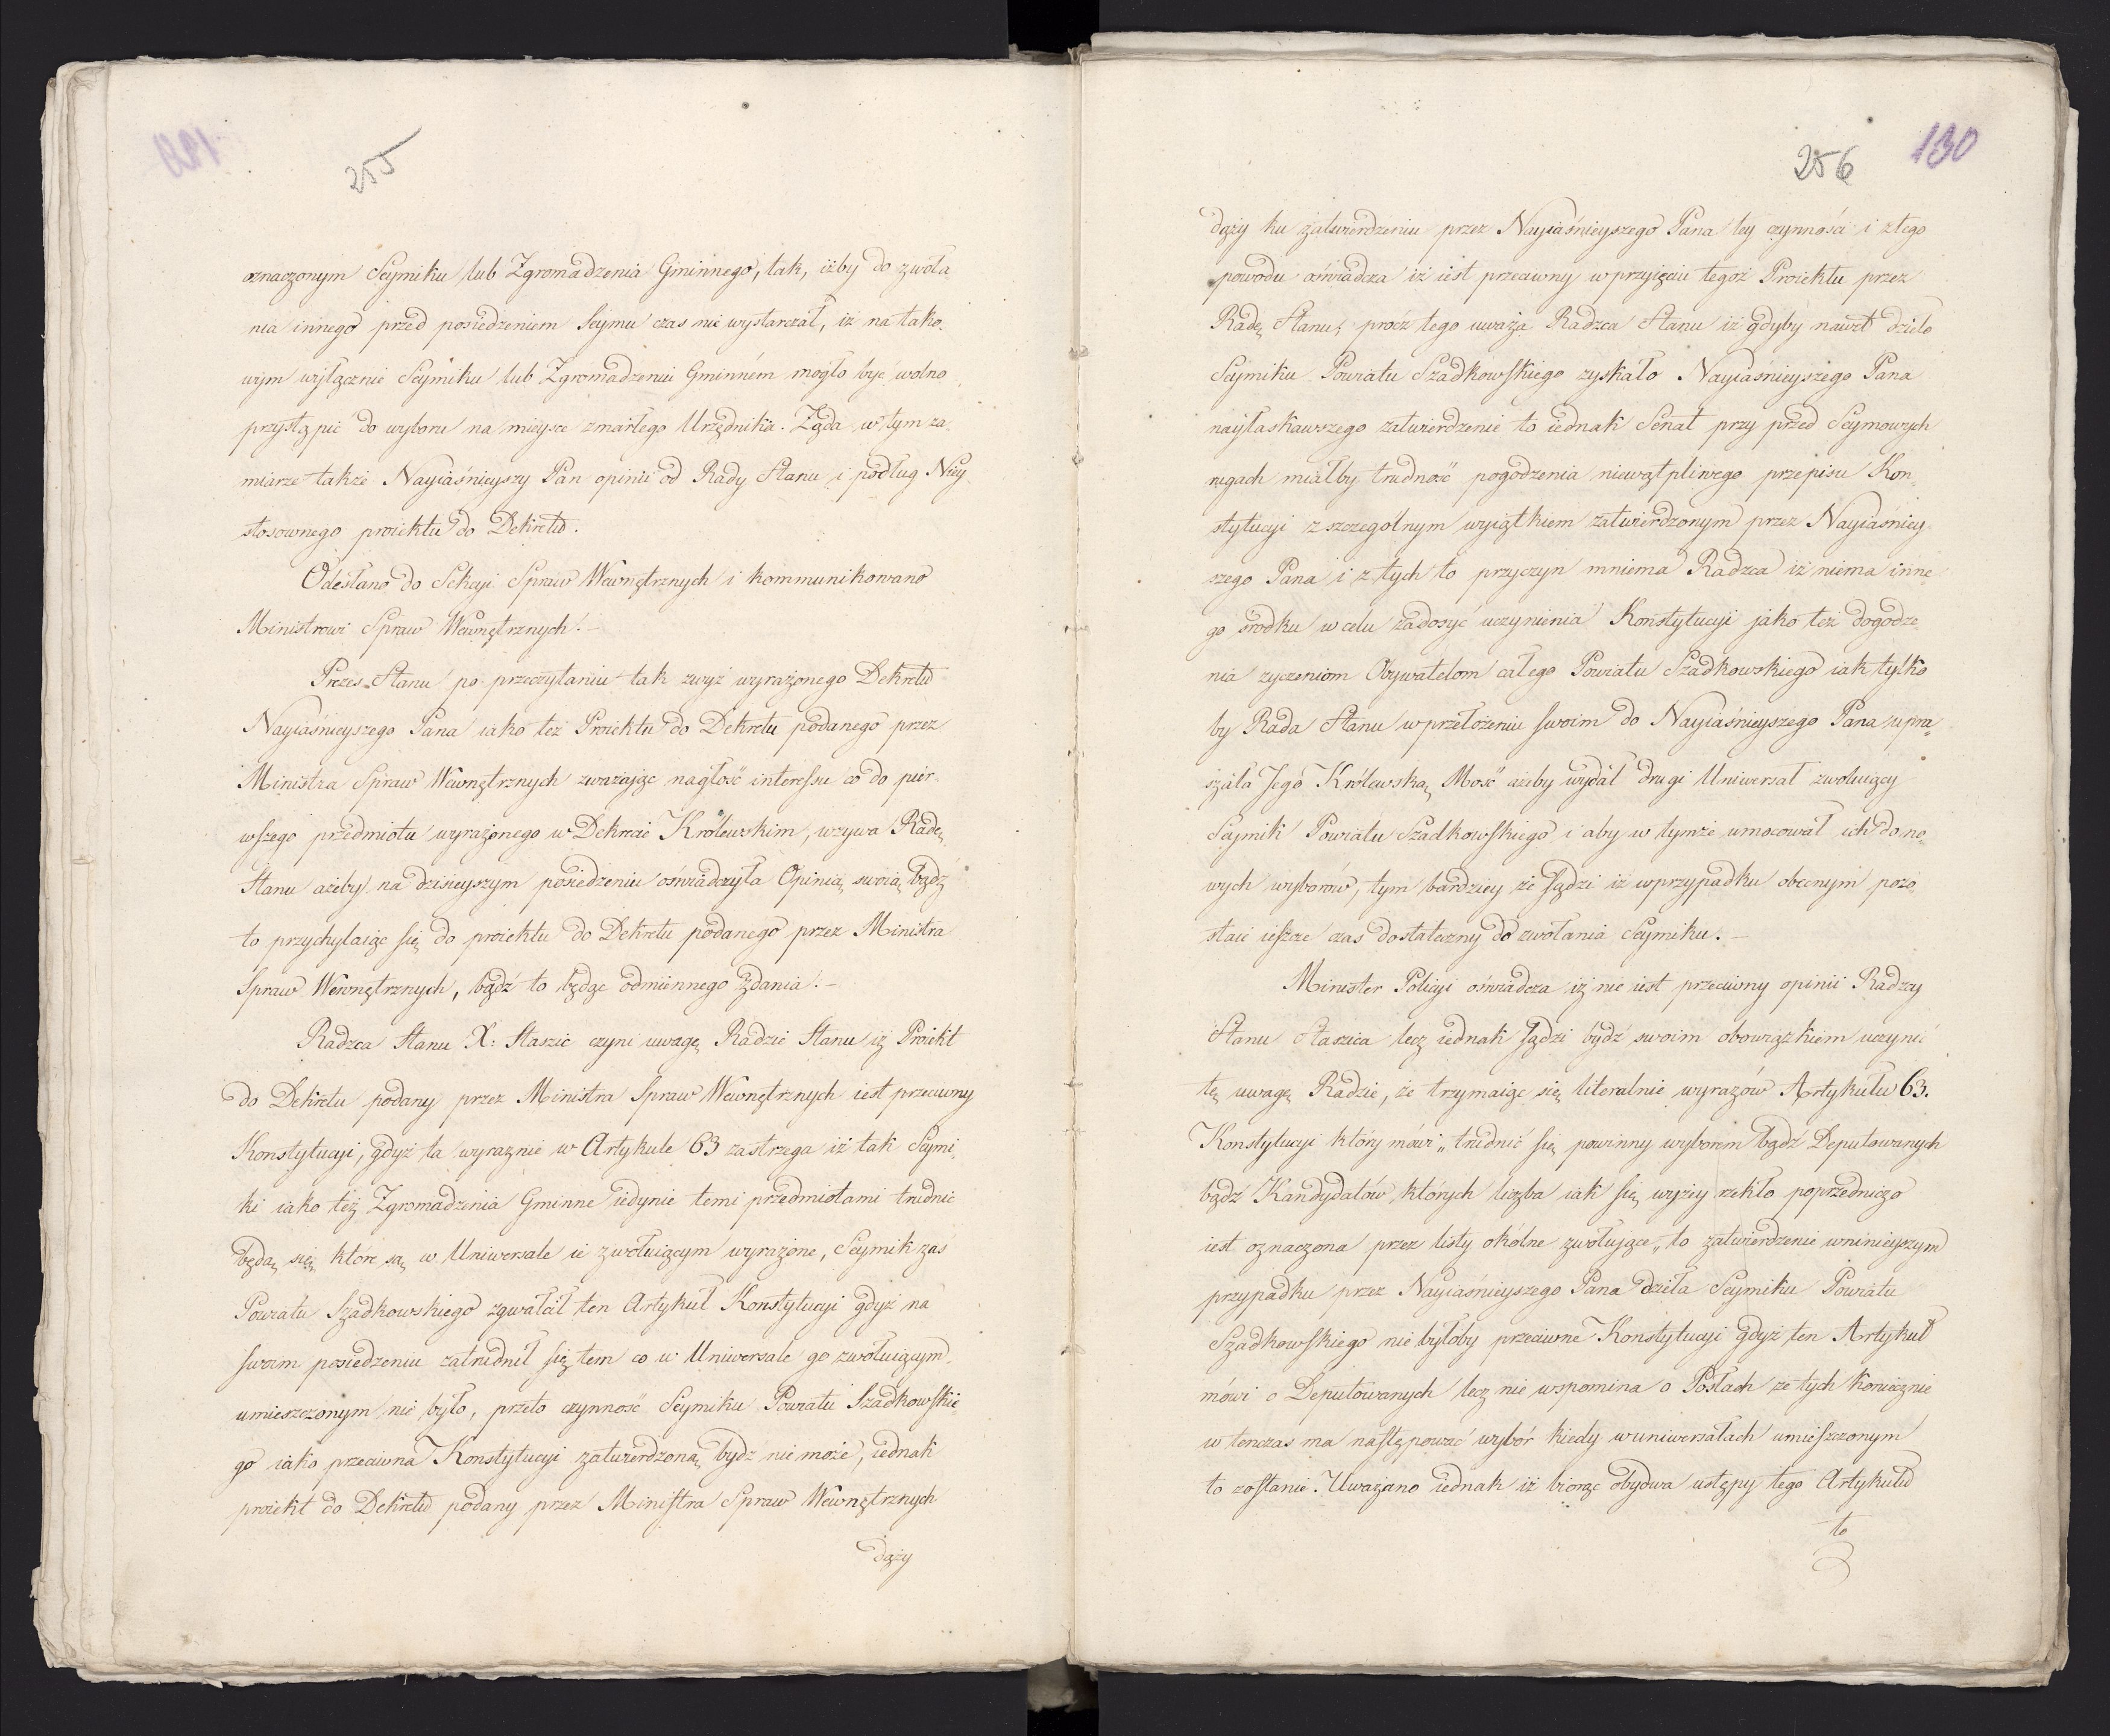 255
oznaczonym Seymiku lub Zgromadzenia Gminnego, tak, iżby do zwoła
nia innego przed posiedzeniem Seymu czas nie wystarczał, iż na tako
wym wyłącznie Seymiku lub Zgromadzeniu Gminném mogło być wolno
przystąpić do wyboru na mieysce zmarłego Urzędnika. Żąda w tym za
miarze także Nayiaśnieyszy Pan opinii od Rady Stanu i podług Niey
stosownego proiektu do Dekretu.
Odesłano do Sekcyi Spraw Wewnętrznych i kommunikowano
Ministrowi Spraw Wewnętrznych. –
Prezes Stanu po przeczytaniu tak zwyż wyrażonego Dekretu
Nayiaśnieyszego Pana iako też Proiektu do Dekretu podanego przez
Ministra Spraw Wewnętrznych zważaiąc nagłość interessu co do pier
wszego przedmiotu wyrażonego w Dekrecie Królewskim, wzywa Radę
Stanu ażeby na dzisieyszym posiedzeniu oświadczyła Opinią swoią bądź
to przychylaiąc się do proiektu do Dekretu podanego przez Ministra
Spraw Wewnętrznych, bądź to będąc odmiennego zdania. –
Radzca Stanu X: Staszic czyni uwagę Radzie Stanu iż Proiekt
do Dekretu podany przez Ministra Spraw Wewnętrznych iest przeciwny
Konstytucyi, gdyż ta wyraznie w Artykule 63 zastrzega iż tak Seymi
ki iako też Zgromadzenia Gminne iedynie temi przedmiotami trudnić
będą się, które są w Uniwersale ie zwołuiącym wyrażone, Seymik zaś
Powiatu Szadkowskiego zgwałcił ten Artykuł Konstytucyi gdyż na
swoim posiedzeniu zatrudnił się tem co w Uniwersale go zwołuiącym
umieszczonym nie było, przeto czynność Seymiku Powiatu Szadkowskie
go iako przeciwna Konstytucyi zatwierdzoną bydź nie może, iednak
proiekt do Dekretu podany przez Ministra Spraw Wewnętrznych
dąży
256
130
dąży ku zatwierdzeniu przez Nayiaśnieyszego Pana tey czynności i z tego
powodu oświadcza iż iest przeciwny w przyięciu tegoż Proiektu przez
Radę Stanu; prócz tego uważa Radzca Stanu iż gdyby nawet dzieło
Seymiku Powiatu Szadkowskiego zyskało Nayiaśnieyszego Pana
nayłaskawszego zatwierdzenie to iednak Senat przy przed Seymowych
rugach miałby trudność pogodzenia niewątpliwego przepisu Kon
stytucyi z szczególnym wyiątkiem zatwierdzonym przez Nayiaśniey
szego Pana i z tych to przyczyn mniema Radzca iż niema inne
go środku w celu zadosyć uczynienia Konstytucyi jako też dogodze
nia życzeniom Obywatelom całego Powiatu Szadkowskiego iak tylko
by Rada Stanu w przełożeniu swoim do Nayiaśnieyszego Pana upra
szała Jego Królewską Mość ażeby wydał drugi Uniwersał zwołuiący
Seymik Powiatu Szadkowskiego i aby w tymże umocował ich do no
wych wyborów, tym bardziey że sądzi iż w przypadku obecnym pozo
staie ieszcze czas dostateczny do zwołania Seymiku. –
Minister Policyi oświadcza iż nie iest przeciwny opinii Radzcy
Stanu Staszica lecz iednak sądzi bydź swoim obowiązkiem uczynić
tę uwagę Radzie, że trzymaiąc się literalnie wyrazów Artykułu 63.
Konstytucyi który mówi „trudnić się powinny wyborem bądź Deputowanych
bądź Kandydatów których liczba iak się wyżey rzekło poprzedniczo
iest oznaczona przez listy okólne zwołujące„ to zatwierdzenie w ninieyszym
przypadku przez Nayiaśnieyszego Pana dzieła Seymiku Powiatu
Szadkowskiego nie byłoby przeciwne Konstytucyi gdyż ten Artykuł
mówi o Deputowanych lecz nie wspomina o Posłach że tych koniecznie
w tenczas ma następować wybór kiedy w uniwersałach umieszczonym
to zostanie. Uważano iednak iż biorąc obydwa ustępy tego Artykułu
to